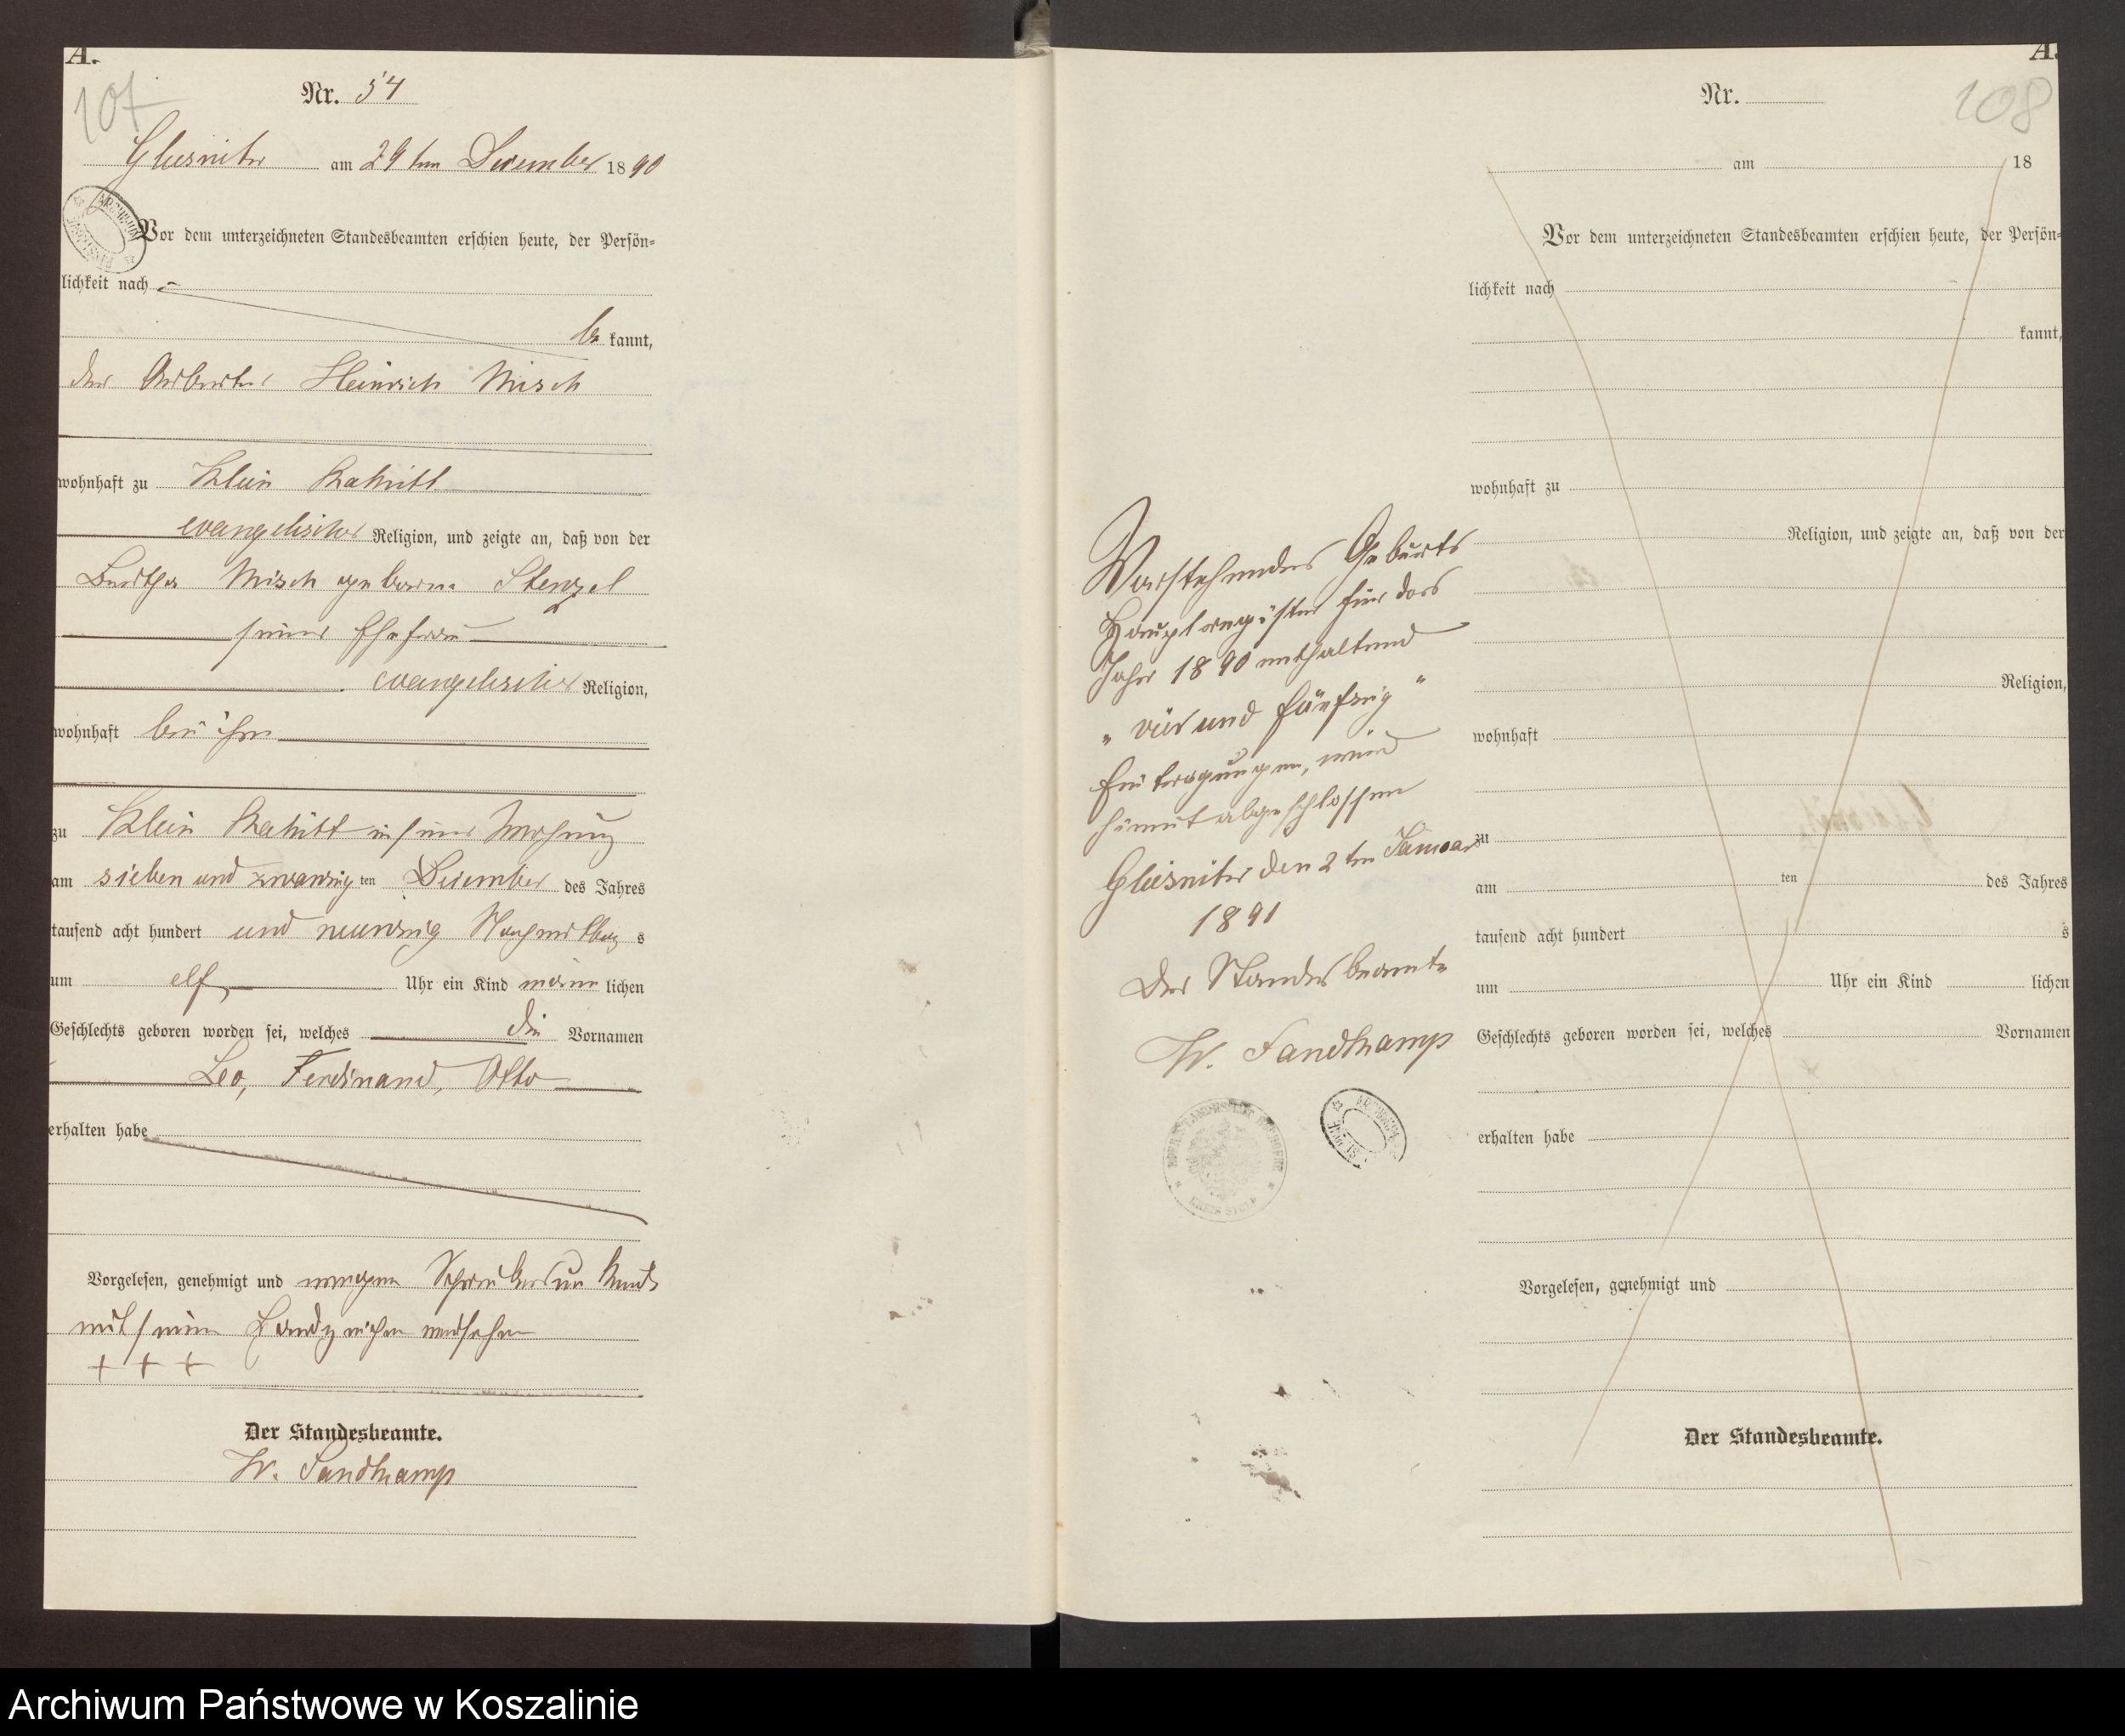 A.
107
Nr. 54
Gluesnitz am 29ten December 1890
ARCHIWUM
Vor dem unterzeichneten Standesbeamten erschien heute, der Persön=
lichkeit nach
be kannt,
der Arbeiter Heinrich Misch
wohnhaft zu Klein Rakitt
evangelischer Religion, und zeigte an, daß von der
Bertha Misch geborene Stenzel
seiner Ehefrau
evangelischer Religion,
wohnhaft bei ihm
zu Klein Rakitt in seiner Wohnung
am sieben und zwanzig ten December des Jahres
tausend acht hundert und neunzig Nachmittag s
um elf Uhr ein Kind männ lichen
Geschlechts geboren worden sei, welches die Vornamen
Leo, Ferdinand, Otto
erhalten habe
Vorgelesen, genehmigt und wegen Schreibensunkunde
mit seinem Handzeichen versehen
+ + +
Der Standesbeamte.
W. Sandkamp
Vorstehendes Geburts
Hauptregister für das
Jahr 1890 enthaltend
" vier und fünfzig "
Eintragungen, wird
hiermit abgeschlossen
den 2ten Januar
1891
Der Standesbeamte
W. Sandkamp
KREIS STOLP
A.
108
Nr.
am 18
Vor dem unterzeichneten Standesbeamten erschien heute, der Persön=
lichkeit nach
kannt,
wohnhaft zu
Religion, und zeigte an, daß von der
Religion,
wohnhaft
zu
am ten des Jahres
tausend acht hundert s
um Uhr ein Kind lichen
Geschlechts geboren worden sei, welches Vornamen
erhalten habe
Vorgelesen, genehmigt und
Der Standesbeamte.
Archiwum Państwowe w Koszalinie